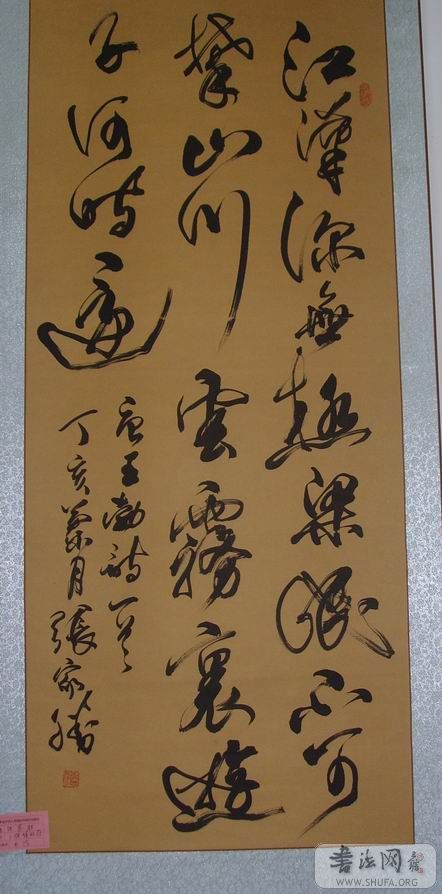 江漢深無極梁岷不可
攀山川雲霧裏遊
子何時還
唐王勃詩一首
丁亥 月張家
書法网
WWW.SHUFA.ORG